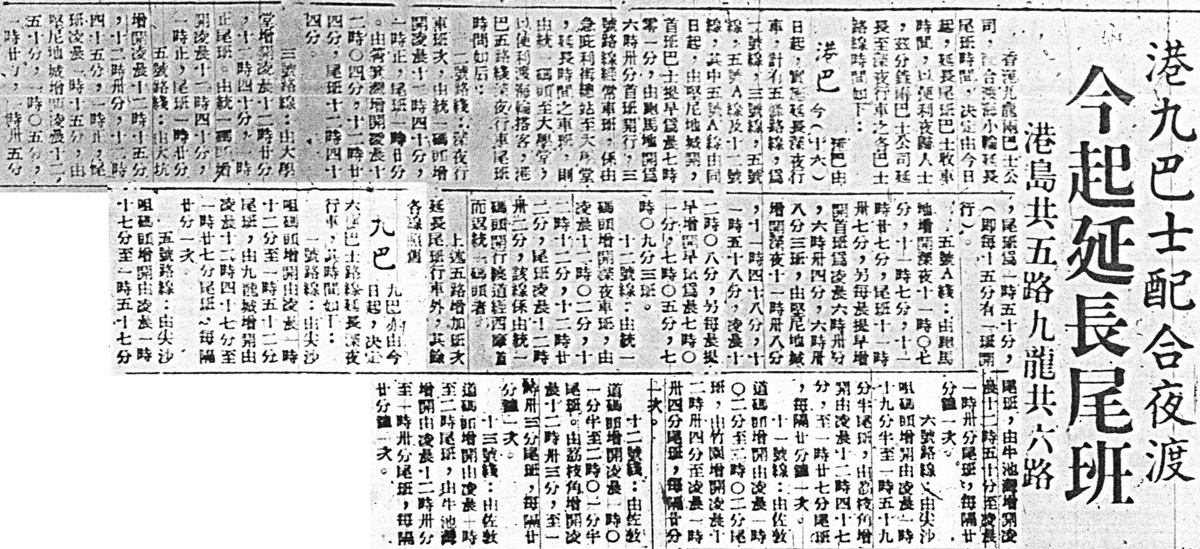 港九巴士配合夜渡
今起延長尾班
港島共五路九龍共六路
香港九龍兩巴士公
司，配合渡海小輪延長
尾班時間，決定由今日
起，延長尾班巴士收車
時間，以便利夜歸人士
，茲分錄兩巴士公司延
長至深夜行車之各巴士
路線時間如下：
港巴
今（十六）
港巴由
日起，實施延長深夜行
車，計有五條路線，爲
二號線，三號線，五號
線，五號A線及十二號
線，其中五號A線由同
日起，由堅尼地城開，
首班巴士提早爲晨七時
零一分，由跑馬地開爲
六時卅分首班開行，三
號路線經常車班，係由
急庇利街總站至大學堂
，延長時間之車班，則
由統一碼頭至大學堂，
以便利渡海輪搭客，港
巴五路綫深夜行車尾班
時間如后：
二號路綫：深夜行
車班次，由統一碼頭增
開凌晨十二時四十分，
一時正，尾班一時廿分
。由筲箕灣增開凌晨十
二時〇四分，十二時廿
四分，尾班十二時四十
四分
三號路線：由大學
堂增開凌晨十二時廿分
，十二時四十分，一時
正尾班。由統一碼頭增
開凌晨十二時四十分，
一時正，尾班一時廿分
五號路線：由大坑
增開凌晨十二時十五分
，十二時卅分，十二時
四十五分，一時正，尾
班凌晨一時十五分，由
堅尼地城增開凌晨十二
時五十分，一時〇五分，一
時廿分，一時卅五分
，尾班爲一時五十分，
（即每十五分有一班開
行）。
五號A綫：由跑馬
地增開深夜十一時〇七
分，十一時十七分，十一
時廿七分，尾班十一時
卅七分，另每晨提早增
開首班爲凌晨六時卅分
，六時卅四分，六時卅
八分三班，由堅尼地城
增開深夜十一時卅八分
，十一時四十八分，十
一時五十八分，凌晨十
二時〇八分，另每晨提
早增開早班爲晨七時〇
一分，七時〇五分，七
時〇九分三班。
十二號綫：由統一
碼頭增開深夜車班，由
凌晨十二時〇二分，十
二時十二分，十二時廿
二分，尾班凌晨十二時
卅二分，該綫係由統一
碼頭開行後道經西摩道
而返統一碼頭者。
上述五路增加班次
延長尾班行車外，其餘
各線照舊
九巴
九巴亦由今
日起，決定
六條巴士路綫延長深夜
行車，其時間如下：
一號路線：由尖沙
咀碼頭增開由凌晨一時
十二分至一時五十二分
尾班，由九龍城增開由
凌晨十二時四十七分至
一時廿七分尾班，每隔
廿分一次。
五號路線：由尖沙
咀碼頭增開由凌晨一時
十七分至一時五十七分
尾班，由牛池灣增開凌
晨十二時五十分至凌晨
一時卅分尾班，每隔廿
分鐘一次。
六號路線：由尖沙
咀碼頭增開由凌晨一時
十九分半至一時五十九
分半尾班，由荔枝角增
開由凌晨十二時四十七
分，至一時廿七分尾班
，每隔廿分鐘一次。
十一號綫：由佐敦
道碼頭增開由凌晨一時
〇二分至二時〇二分尾
班，由竹園增開凌晨十
二時卅四分至凌晨一時
卅四分尾班，每隔廿分
一次。
十二號綫：由佐敦
道碼頭增開凌晨一時〇
一分半至二時〇一分半
尾班。由荔枝角增開凌
晨十二時卅三分，至一
時卅三分尾班，每隔廿
分鐘一次。
十三號綫：由佐敦
道碼頭增開由凌晨一時
至二時尾班，由牛池灣
增開由凌晨十二時卅分
至一時卅分尾班，每隔
廿分鐘一次。